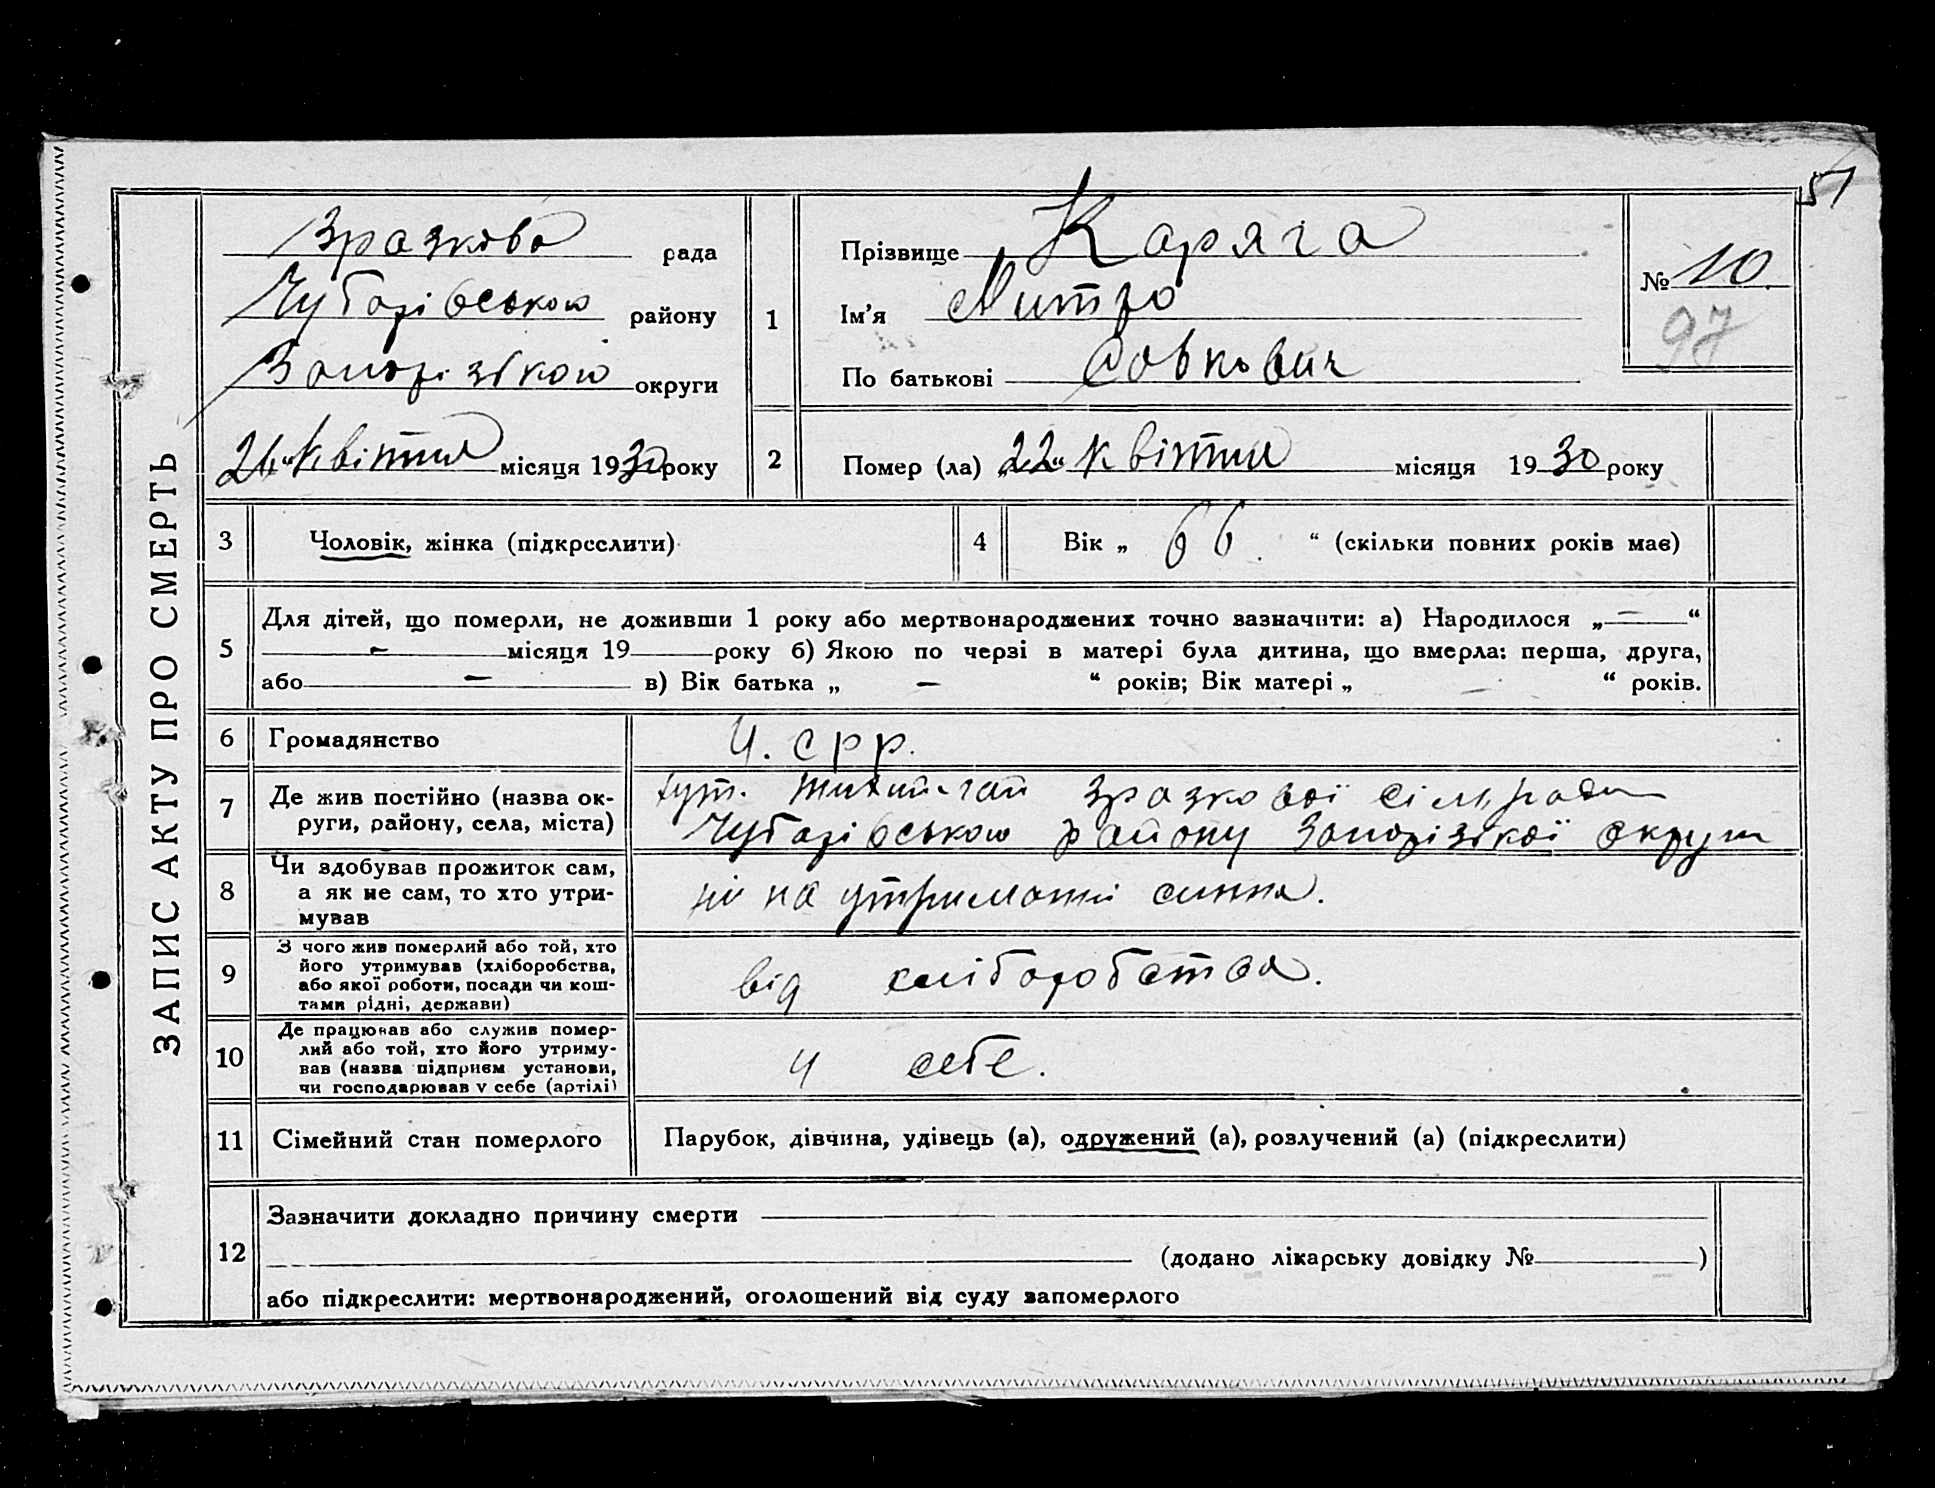 51
ЗАПИС АКТУ ПРО СМЕРТЬ
Зразкова рада
Чубарівського району
Запорізької округи
„24“ квітня місяця 1930 року
1
Прізвище Каряга
Ім'я Митро
По батькові Савкович
№ 10.
97
2
Помер (ла) „22“ квітня місяця 1930 року
3
Чоловік, жінка (підкреслити)
4
Вік „ 66 “ (скільки повних років має)
5
Для дітей, що померли, не доживши 1 року або мертвонароджених точно зазначити: а) Народилося „ — “
— місяця 19 року б) Якою по черзі в матері була дитина, що вмерла: перша, друга,
або — в) Вік батька „ — “ років; Вік матері „ — “ років.
6
Громадянство
У. С Р Р.
7
Де жив постійно (назва ок-
руги, району, села, міста)
хут. Тихий-гай Зразкової сільради
Чубарівського району Запорізької округи
8
Чи здобував прожиток сам,
а як не сам, то хто утри-
мував
ні на утриманні сина.
9
З чого жив померлий або той, хто
його утримував (хліборобства,
або якої роботи, посади чи кош-
тами рідні, держави)
від хліборобства.
10
Де працював або служив помер-
лий або той, хто його утриму-
вав (назва підприєм установи,
чи господарював у себе (артілі)
у себе.
11
Сімейний стан померлого
Парубок, дівчина, удівець (а), одружений (а), розлучений (а) (підкреслити)
12
Зазначити докладно причину смерти
(додано лікарську довідку № )
або підкреслити: мертвонароджений, оголошений від суду запомерлого